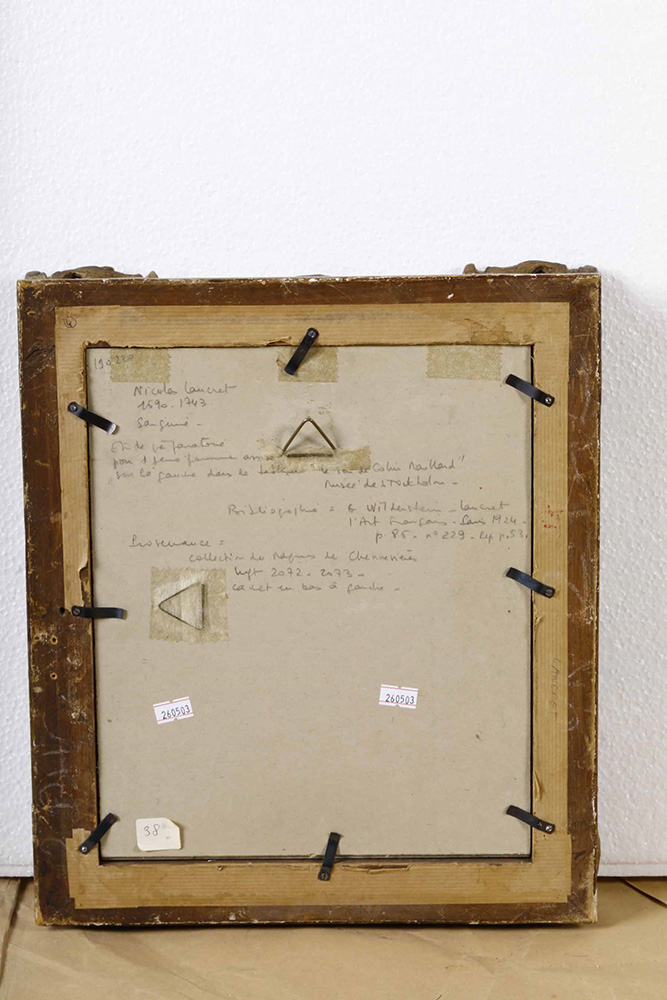 190220
Nicolas Lancret
1690-1743
Sanguine -
Etude préparatoire
pour 1 jeune femme assise
sur la gauche dans le tableau "le jeu de Colin Maillard"
Musée de Stockholm -
Bibliographie = G Wildenstein - Lancret
l'Art Français - Paris 1924 -
p. 85 - n° 229 - Rep p. 53.
Provenance =
collection du Marquis de Chennevières
Lugt 2072 - 2073 -
cachet en bas à gauche -
260503
260503
38
LANCRET